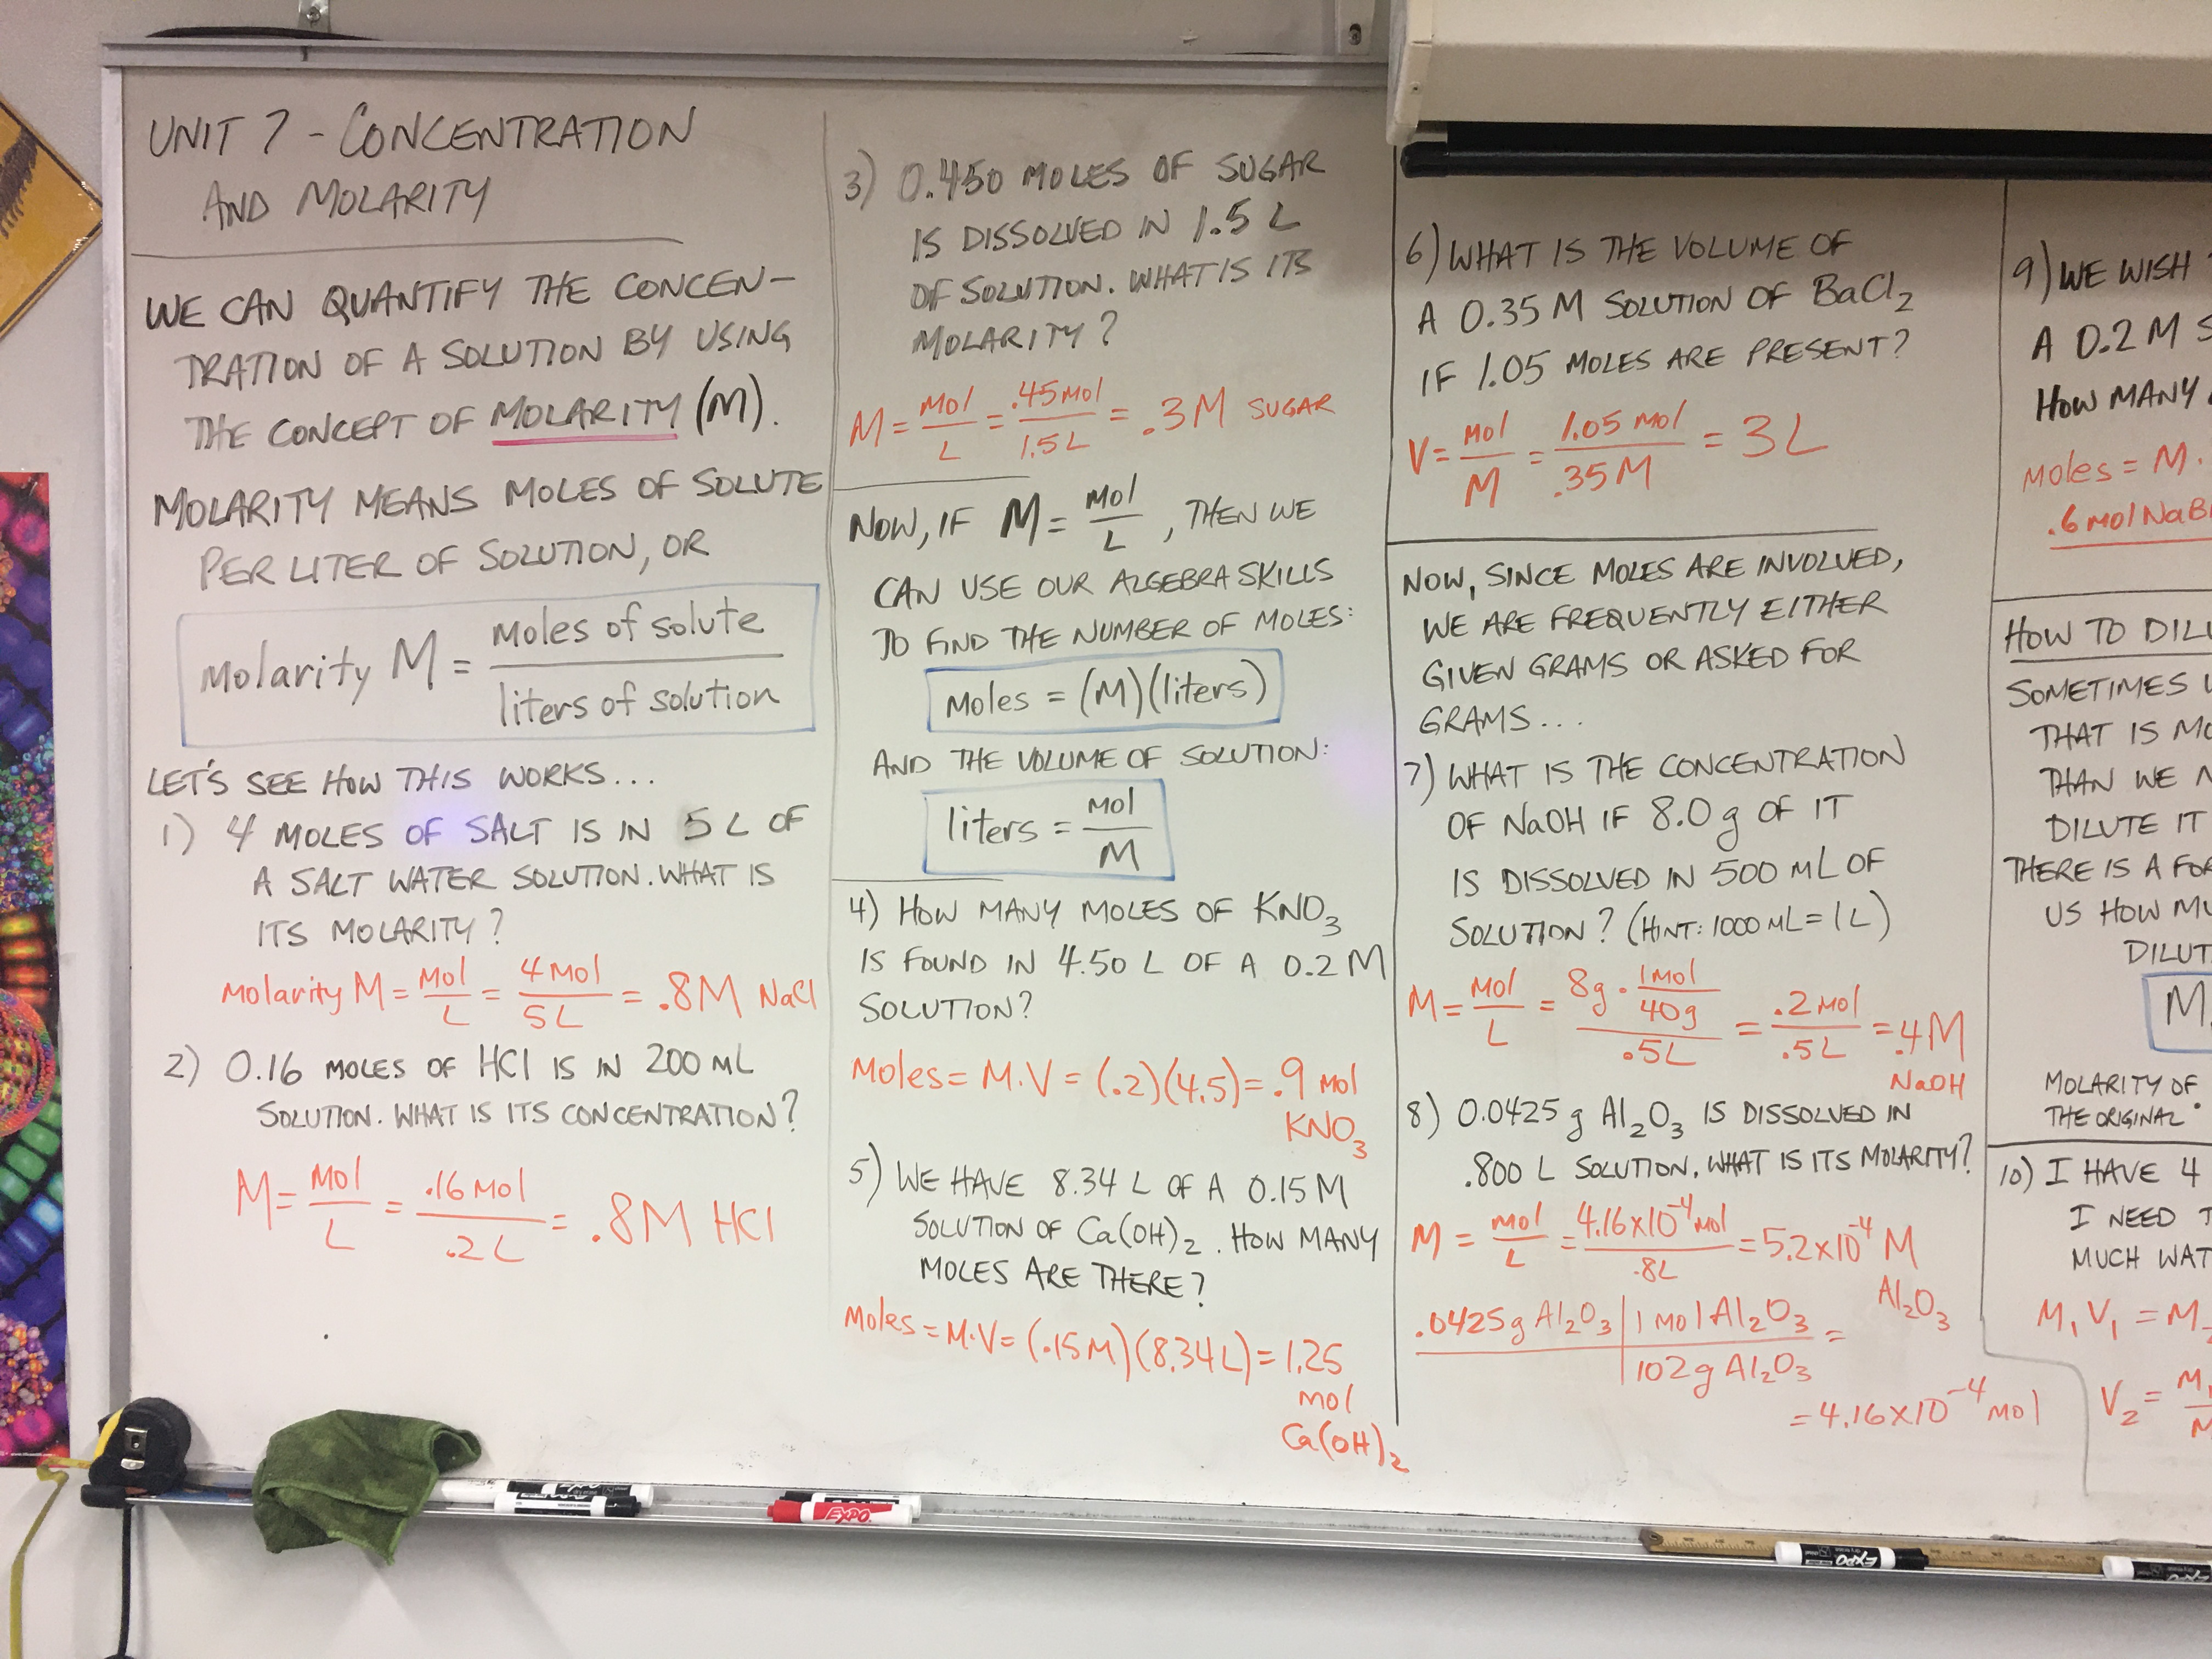 UNIT 7 - CONCENTRATION
AND MOLARITY
WE CAN QUANTIFY THE CONCEN-
TRATION OF A SOLUTION BY USING
THE CONCEPT OF MOLARITY (M).
MOLARITY MEANS MOLES OF SOLUTE
PER LITER OF SOLUTION, OR
molarity M = moles of solute / liters of solution
LET'S SEE HOW THIS WORKS...
1) 4 MOLES OF SALT IS IN 5 L OF
A SALT WATER SOLUTION. WHAT IS
ITS MOLARITY?
Molarity M = mol/L = 4 mol/5L = .8M NaCl
2) 0.16 MOLES OF HCl IS IN 200 ML
SOLUTION. WHAT IS ITS CONCENTRATION?
M = mol/L = .16 mol/.2L = .8M HCl
3) 0.450 MOLES OF SUGAR
IS DISSOLVED IN 1.5 L
OF SOLUTION. WHAT IS ITS
MOLARITY?
M = mol/L = .45 mol/1.5L = .3M SUGAR
NOW, IF M = mol/L, THEN WE
CAN USE OUR ALGEBRA SKILLS
TO FIND THE NUMBER OF MOLES:
moles = (M)(liters)
AND THE VOLUME OF SOLUTION:
liters = mol/M
4) HOW MANY MOLES OF KNO₃
IS FOUND IN 4.50 L OF A 0.2 M
SOLUTION?
Moles = M·V = (.2)(4.5) = .9 mol
KNO₃
5) WE HAVE 8.34 L OF A 0.15 M
SOLUTION OF Ca(OH)₂. HOW MANY
MOLES ARE THERE?
Moles = M·V = (.15M)(8.34L) = 1.25
mol
Ca(OH)₂
6) WHAT IS THE VOLUME OF
A 0.35 M SOLUTION OF BaCl₂
IF 1.05 MOLES ARE PRESENT?
V = mol/M = 1.05 mol/.35M = 3L
NOW, SINCE MOLES ARE INVOLVED,
WE ARE FREQUENTLY EITHER
GIVEN GRAMS OR ASKED FOR
GRAMS...
7) WHAT IS THE CONCENTRATION
OF NaOH IF 8.0 g OF IT
IS DISSOLVED IN 500 ML OF
SOLUTION? (HINT: 1000 ML = 1 L)
M = mol/L = 8g · 1mol/40g / .5L = .2 mol/.5L = .4M
NaOH
8) 0.0425 g Al₂O₃ IS DISSOLVED IN
.800 L SOLUTION. WHAT IS ITS MOLARITY?
M = mol/L = 4.16×10⁻⁴ mol/.8L = 5.2×10⁻⁴ M
Al₂O₃
.0425g Al₂O₃ | 1 mol Al₂O₃ =
102g Al₂O₃
= 4.16×10⁻⁴ mol
9) WE WISH
A 0.2 M S
HOW MANY
moles = M.
.6 mol NaB
HOW TO DIL
SOMETIMES
THAT IS MO
THAN WE N
DILUTE IT
THERE IS A FOR
US HOW MU
DILUT
M
MOLARITY OF
THE ORIGINAL
10) I HAVE 4
I NEED T
MUCH WAT
M₁V₁ = M₂
V₂ = M₁/M
EXPO
EXPO